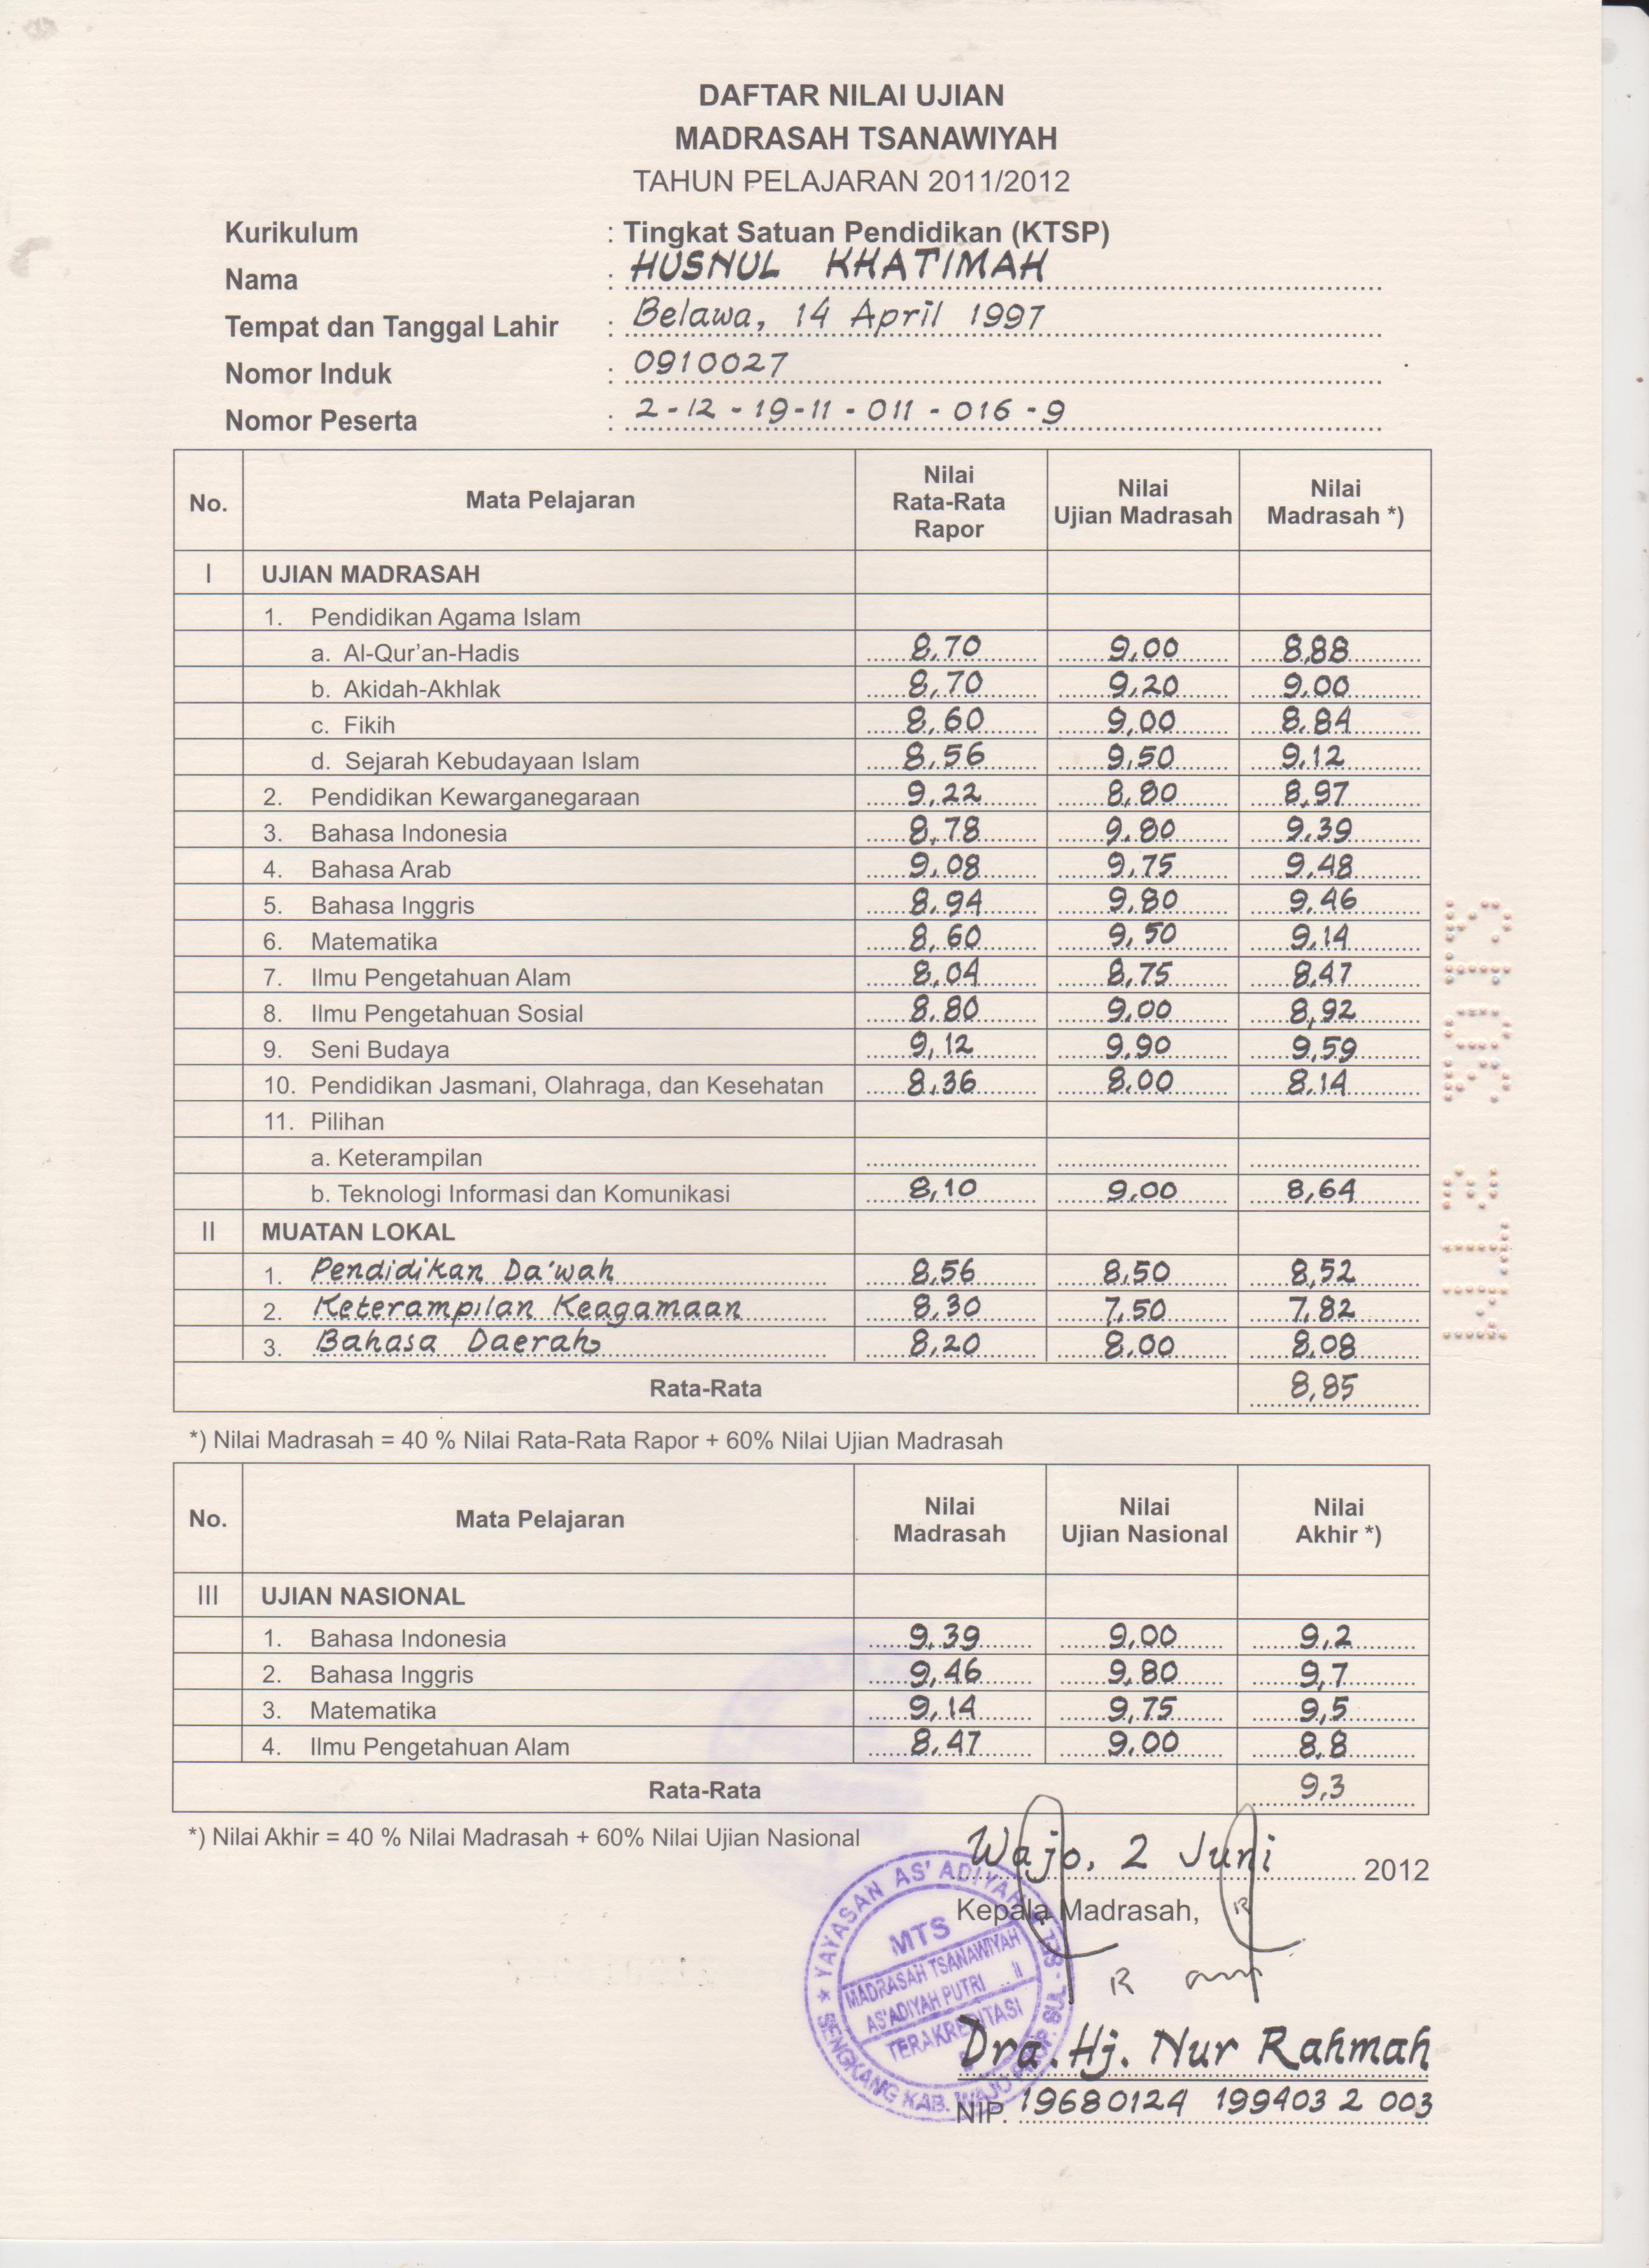 DAFTAR NILAI UJIAN
MADRASAH TSANAWIYAH
TAHUN PELAJARAN 2011/2012
Kurikulum : Tingkat Satuan Pendidikan (KTSP)
Nama : HUSNUL KHATIMAH
Tempat dan Tanggal Lahir : Belawa, 14 April 1997
Nomor Induk : 0910027
Nomor Peserta : 2-12-19-11-011-016-9
No. Mata Pelajaran Nilai Rata-Rata Rapor Nilai Ujian Madrasah Nilai Madrasah *)
I UJIAN MADRASAH
1. Pendidikan Agama Islam
a. Al-Qur'an-Hadis 8,70 9,00 8,88
b. Akidah-Akhlak 8,70 9,20 9,00
c. Fikih 8,60 9,00 8,84
d. Sejarah Kebudayaan Islam 8,56 9,50 9,12
2. Pendidikan Kewarganegaraan 9,22 8,80 8,97
3. Bahasa Indonesia 8,78 9,80 9,39
4. Bahasa Arab 9,08 9,75 9,48
5. Bahasa Inggris 8,94 9,80 9,46
6. Matematika 8,60 9,50 9,14
7. Ilmu Pengetahuan Alam 8,04 8,75 8,47
8. Ilmu Pengetahuan Sosial 8,80 9,00 8,92
9. Seni Budaya 9,12 9,90 9,59
10. Pendidikan Jasmani, Olahraga, dan Kesehatan 8,36 8,00 8,14
11. Pilihan
a. Keterampilan
b. Teknologi Informasi dan Komunikasi 8,10 9,00 8,64
II MUATAN LOKAL
1. Pendidikan Da'wah 8,56 8,50 8,52
2. Keterampilan Keagamaan 8,30 7,50 7,82
3. Bahasa Daerah 8,20 8,00 8,08
Rata-Rata 8,85
*) Nilai Madrasah = 40 % Nilai Rata-Rata Rapor + 60% Nilai Ujian Madrasah
No. Mata Pelajaran Nilai Madrasah Nilai Ujian Nasional Nilai Akhir *)
III UJIAN NASIONAL
1. Bahasa Indonesia 9,39 9,00 9,2
2. Bahasa Inggris 9,46 9,80 9,7
3. Matematika 9,14 9,75 9,5
4. Ilmu Pengetahuan Alam 8,47 9,00 8,8
Rata-Rata 9,3
*) Nilai Akhir = 40 % Nilai Madrasah + 60% Nilai Ujian Nasional
Wajo, 2 Juni 2012
Kepala Madrasah,
YAYASAN AS'ADIYAH
MTS
MADRASAH TSANAWIYAH
AS'ADIYAH PUTRI II
TERAKREDITASI
SENGKANG KAB. WAJO PROP. SUL
Dra. Hj. Nur Rahmah
NIP. 19680124 199403 2 003